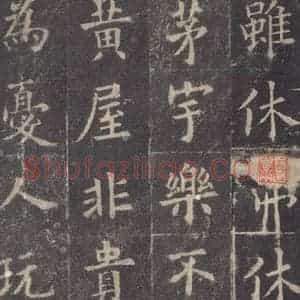 雖休弗休
茅宇樂不
黃屋非貴
為憂人玩